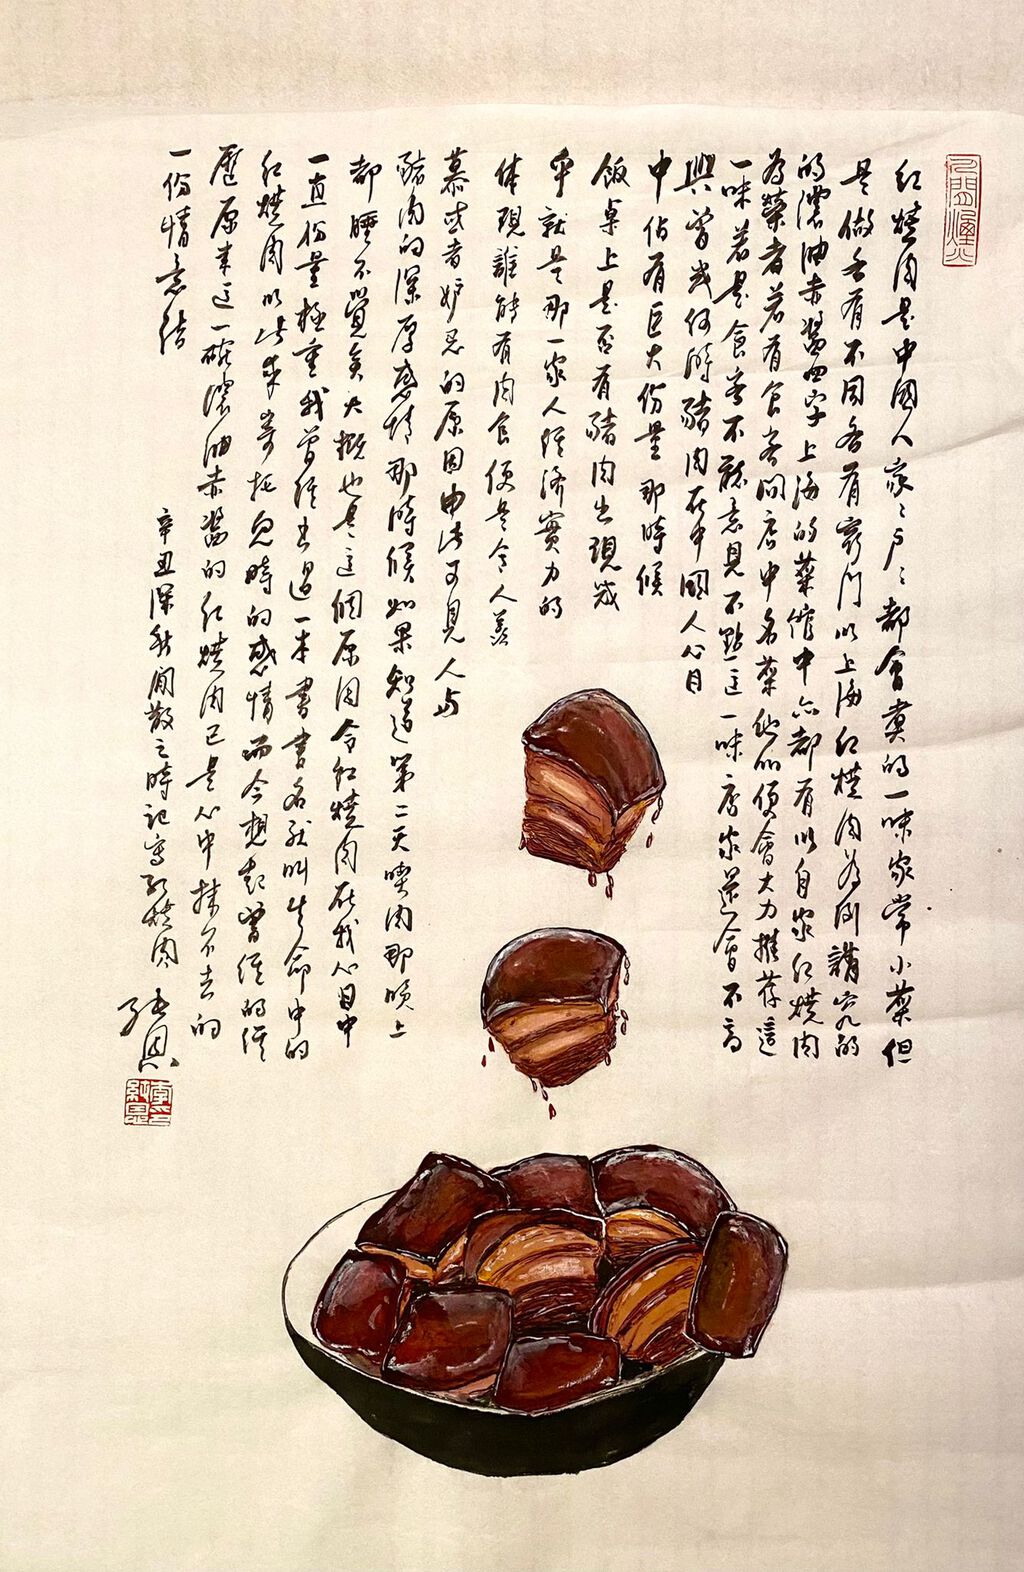 人間煙火
紅燒肉是中國人家々戶々都會煮的一味家常小菜但
是做法有不同各有竅門以上海紅燒肉為例講究的
的濃油赤醬四字上海的菜館中亦都有以自家紅燒肉
為榮者若有食客問店中名菜他們便會大力推荐這
一味若是食客不聽意見不點這一味店家還會不高
興曾幾何時豬肉在中國人心目
中佔有巨大份量那時候
飯桌上是否有豬肉出現或
乎就是那一家人經濟實力的
体現誰能有肉食便是令人羨
慕或者妒忌的原因由此可見人与
豬肉的深厚感情那時候如果知道第二天喫肉那晚上
都睡不覺矣大概也是這個原因令紅燒肉在我心目中
一直份量極重我曾經出過一本書書名就叫生命中的
紅燒肉以此來寄托兒時的感情而今想起曾經的經
歷原來這一碗濃油赤醬的紅燒肉已是心中抹不去的
一份情意結
辛丑深秋閒散之時記寫紅燒肉